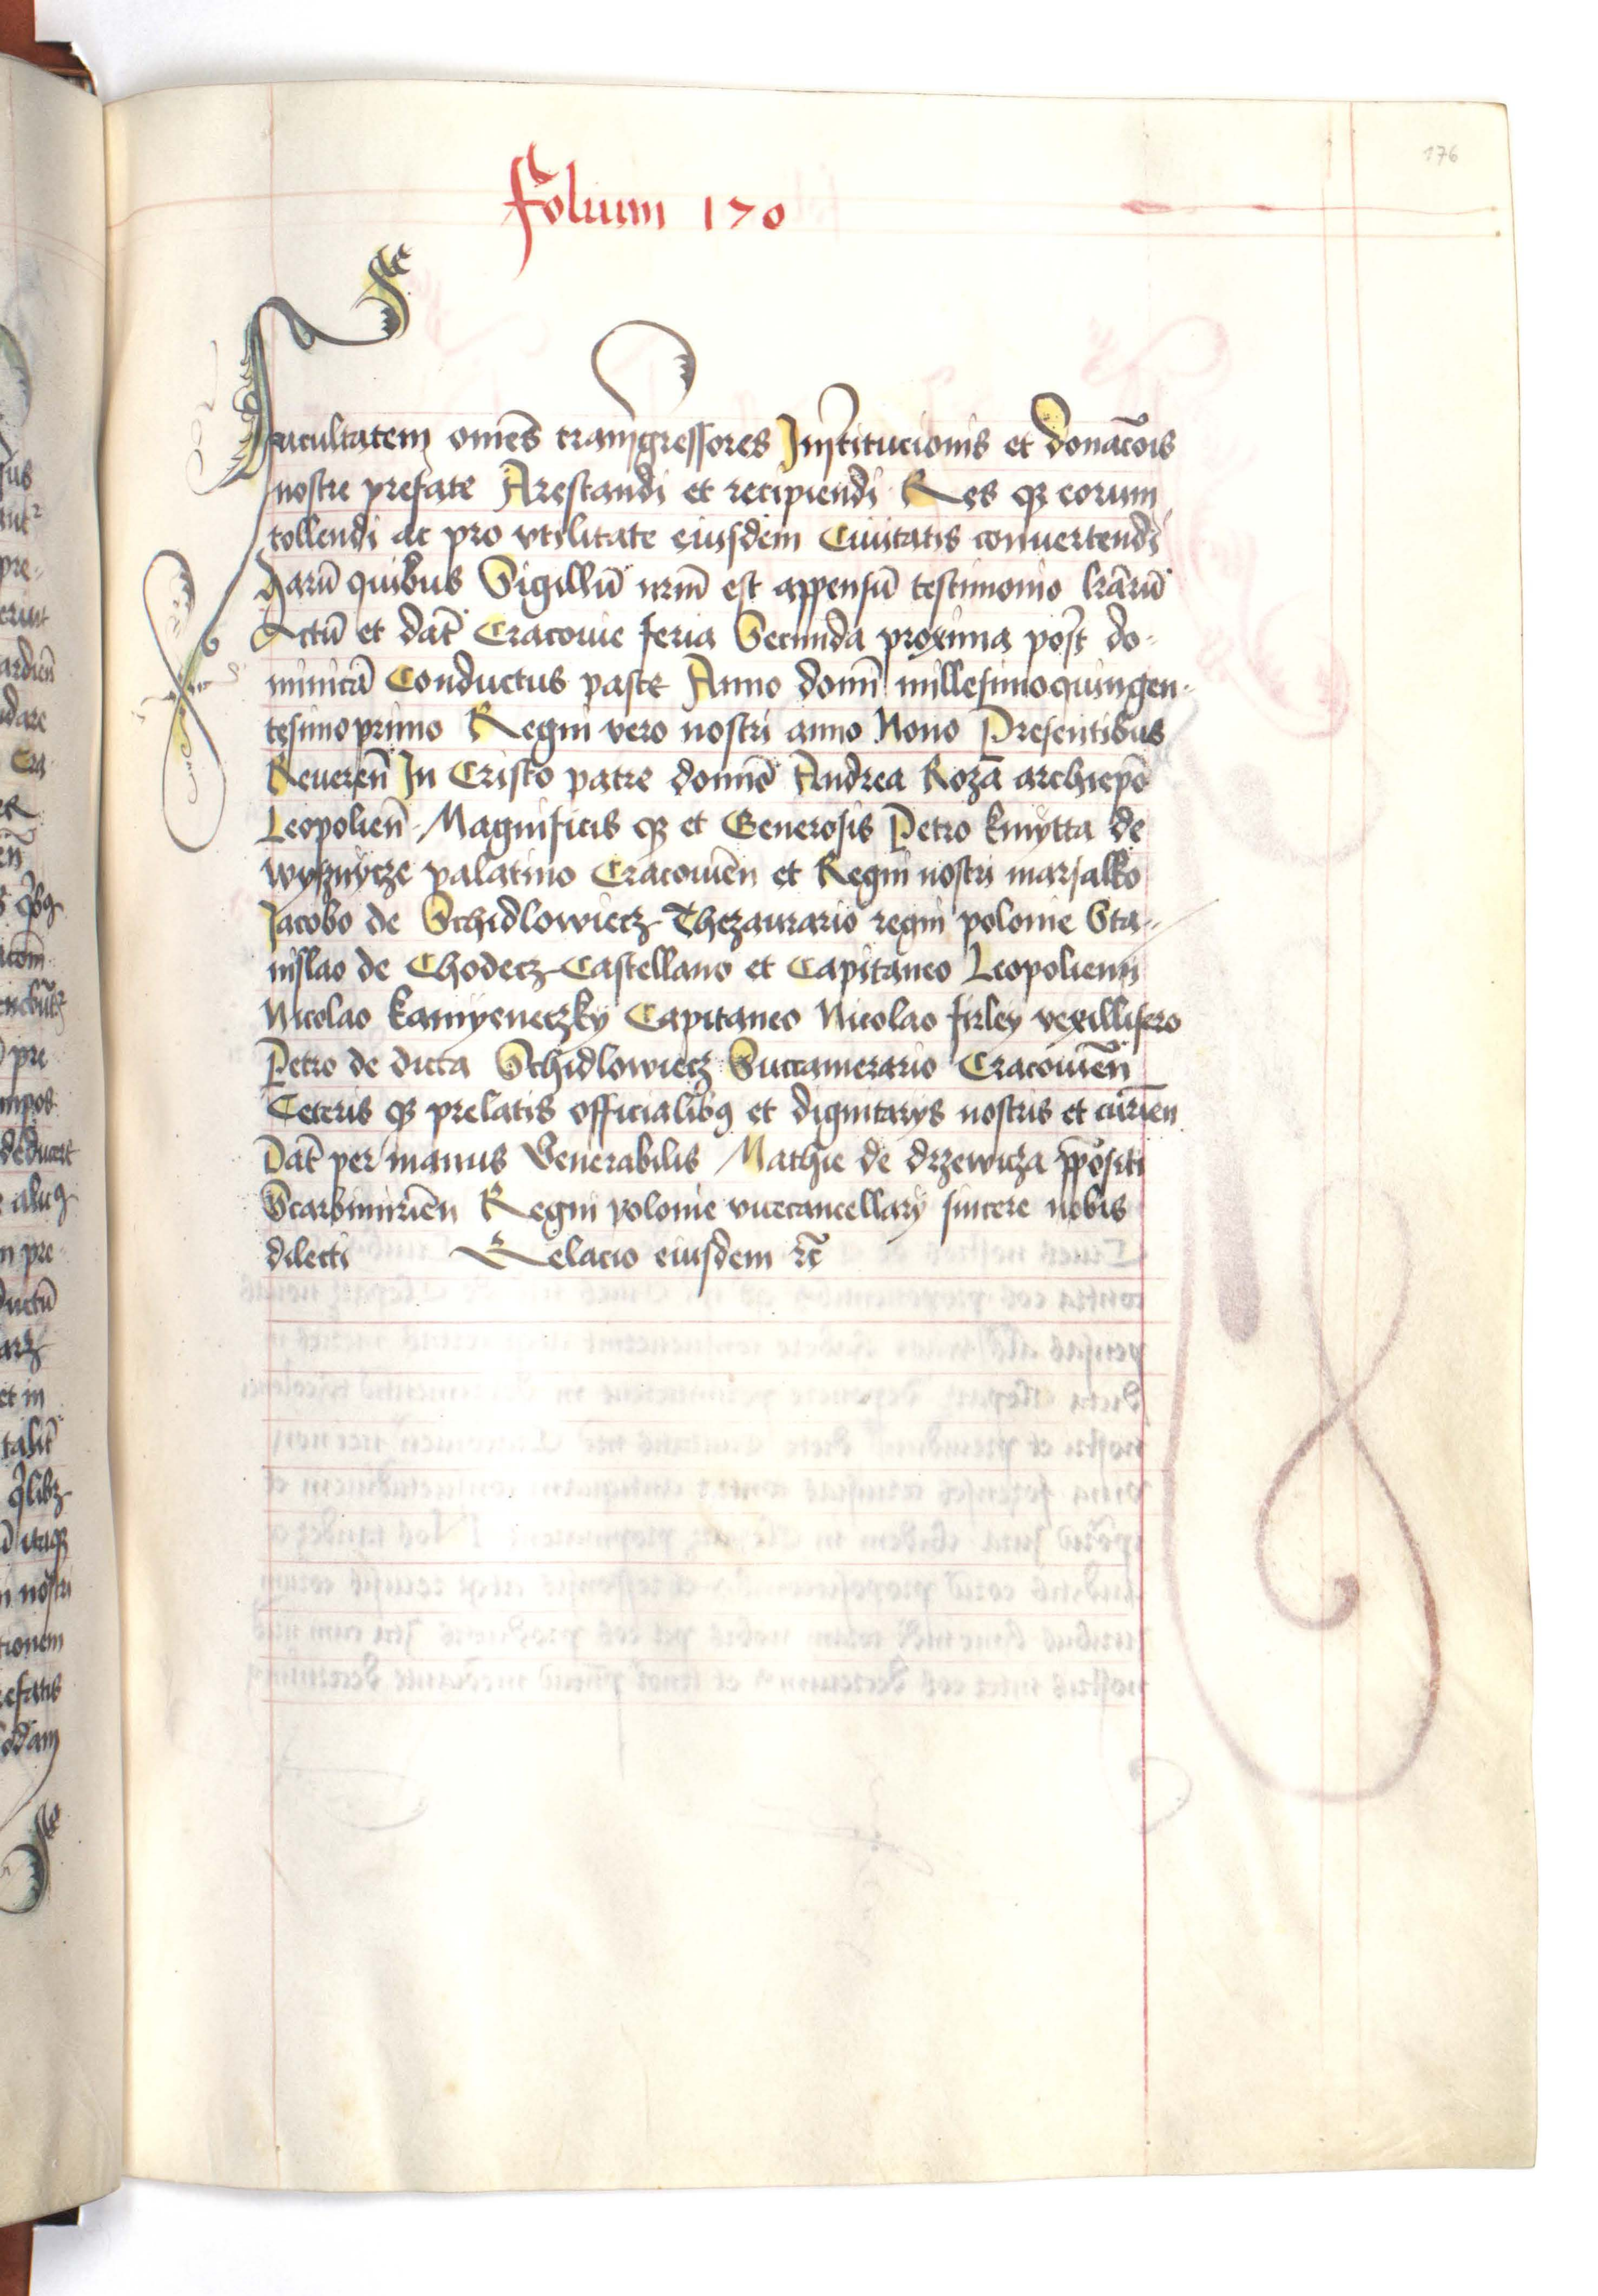 176
Folium 170
facultatem omēs transgressores Institucionis et donacōis
nostre prefate Arestandi et recipiendi Res qz eorum
tollendi ac pro vtilitate eiusdem Ciuitatis conuertendi
harū quibus Sigillū nrm̄ est appensū testimonio lrārū
Actū et dat̄ Cracouie feria Secunda proxima post do-
minicā Conductus pasce Anno domī millesimoquingen-
tesimoprimo Regni vero nostri anno Nono Presentibus
Reueren̄ In Cristo patre domnō Andrea Rozā archiepō
Leopolien̄ Magnificis qz et Generosis Petro kmytta de
wysznycze palatino Cracouien̄ et Regni nostri marsalko
Jacobo de Schidlowiecz Thezaurario regni polonie Sta-
nislao de Chodecz Castellano et Capitaneo Leopolienn
Nicolao kamyeneczky Capitaneo Nicolao firley vexillifero
Petro de dicta Schidlowiecz Succamerario Cracouien̄
Ceteris qz prelatis officialibꝰ et dignitarys nostris et curien̄
Dat̄ per manus Venerabilis Mathie de drzewicza ppositi
Scarbimirien̄ Regni polonie vicecancellary sincere nobis
dilecti Relacio eiusdem rc̄